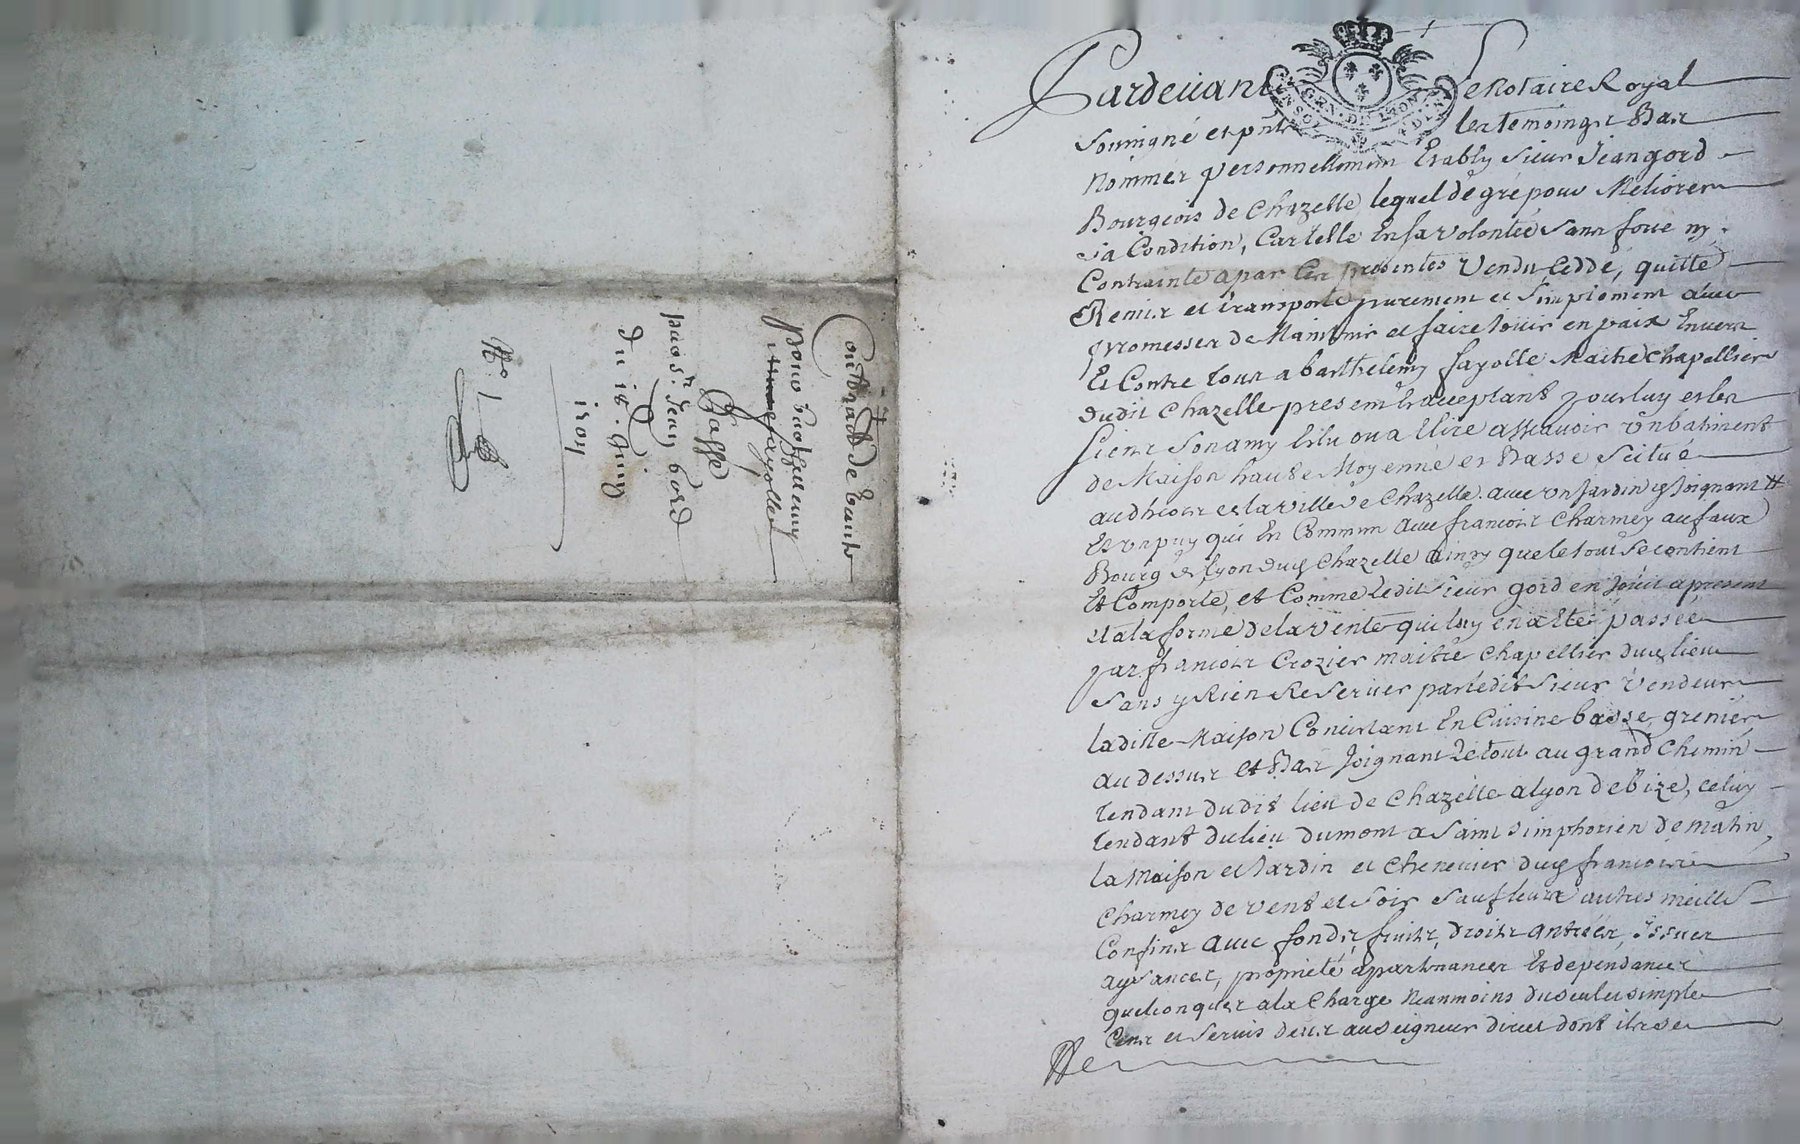 Contract de vente
pour barthelemy
fayolle
Passé
par sr. Jean Gord
du 18. Juin
1701
No. 1
Pardevant Le Notaire Royal
Sousigné et pnts les temoings Bas
Nommés personnellement Estably Sieur Jean gord
Bourgeois de Chazelle lequel de gré pour Meliorer
sa Condition, Car telle En sa volonteé sans force ny
Contrainte a par Ces presentes Vendu Ceddé, quitté
Remis et transporté purement et simplement avec
promesses de Maintenir et faire Jouir en paix Envers
Et Contre tous a barthelemy fayolle Maitre Chapellier
dudit Chazelle present Et acceptant pour luy et les
siens son amy Eslu ou a Elire assavoir Un batiment
de Maison haute Moyenne et Basse Scitué
au dhors de la ville de Chazelle avec un Jardin y Joignant
Et un puy qui En Commun avec francois Charmey au faux
Bourg de lyon dudt Chazelle Ainsy que le tout se contient
Et Comporte, et Comme Ledit sieur gord en Jouit apresent
et a la forme de la vente qui luy en a Eté passeé
par francois Crozier maitre Chapellier dudt lieu
sans y Rien Reserver par ledit Sieur Vendeur
laditte Maison Consistant En Cuisine basse, grenier
au dessus et Bas Joignant Le tout au grand Chemin
tendant dudit lieu de Chazelle a lyon de Bize, celuy
tendant du lieu du mont a Saint simphorien de matin,
la Maison et Jardin et Chenevier dudt francois
Charmey de vent et soir sauf leurs autres meilleurs
Confins avec fonds, fruits, droits antreés, Issues
aysances, proprieté apartenances Et dependances
quelconques a la Charge Neanmoins du seul et simple
Cens et servis deus au seigneur direct dont il se